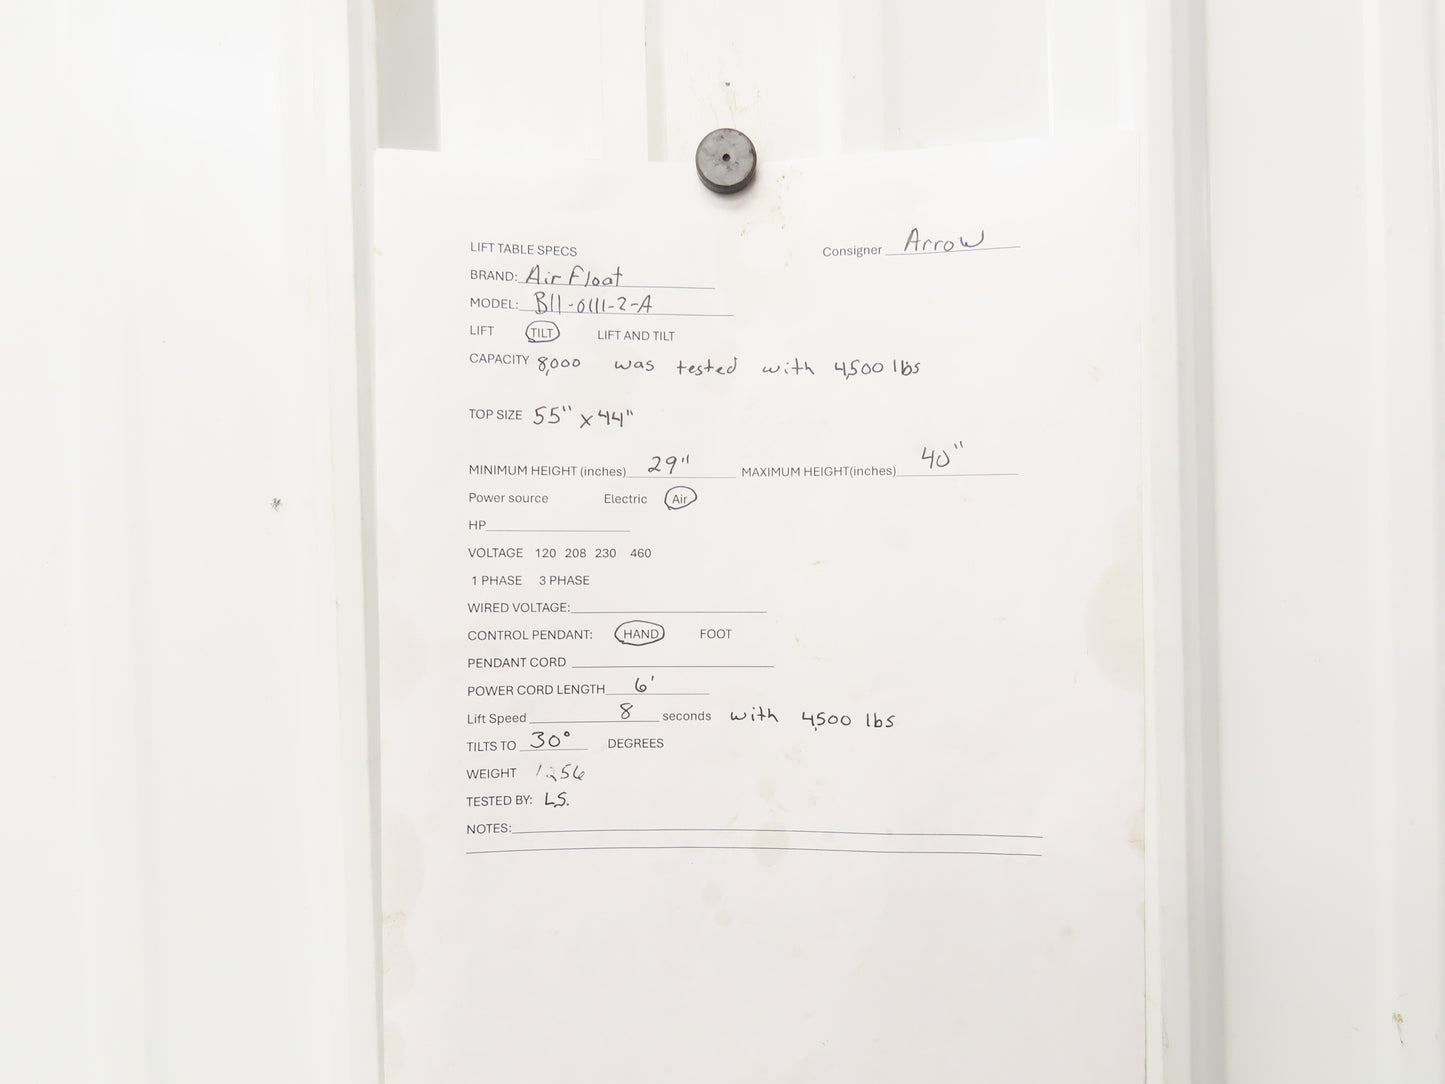 LIFT TABLE SPECS Consigner Arrow
BRAND: Air Float
MODEL: B11-0111-2-A
LIFT TILT LIFT AND TILT
CAPACITY 8,000 was tested with 4,500 lbs
TOP SIZE 55" x 44"
MINIMUM HEIGHT (inches) 29" MAXIMUM HEIGHT(inches) 40"
Power source Electric Air
HP
VOLTAGE 120 208 230 460
1 PHASE 3 PHASE
WIRED VOLTAGE:
CONTROL PENDANT: HAND FOOT
PENDANT CORD
POWER CORD LENGTH 6'
Lift Speed 8 seconds with 4,500 lbs
TILTS TO 30° DEGREES
WEIGHT 1256
TESTED BY: L.S.
NOTES: